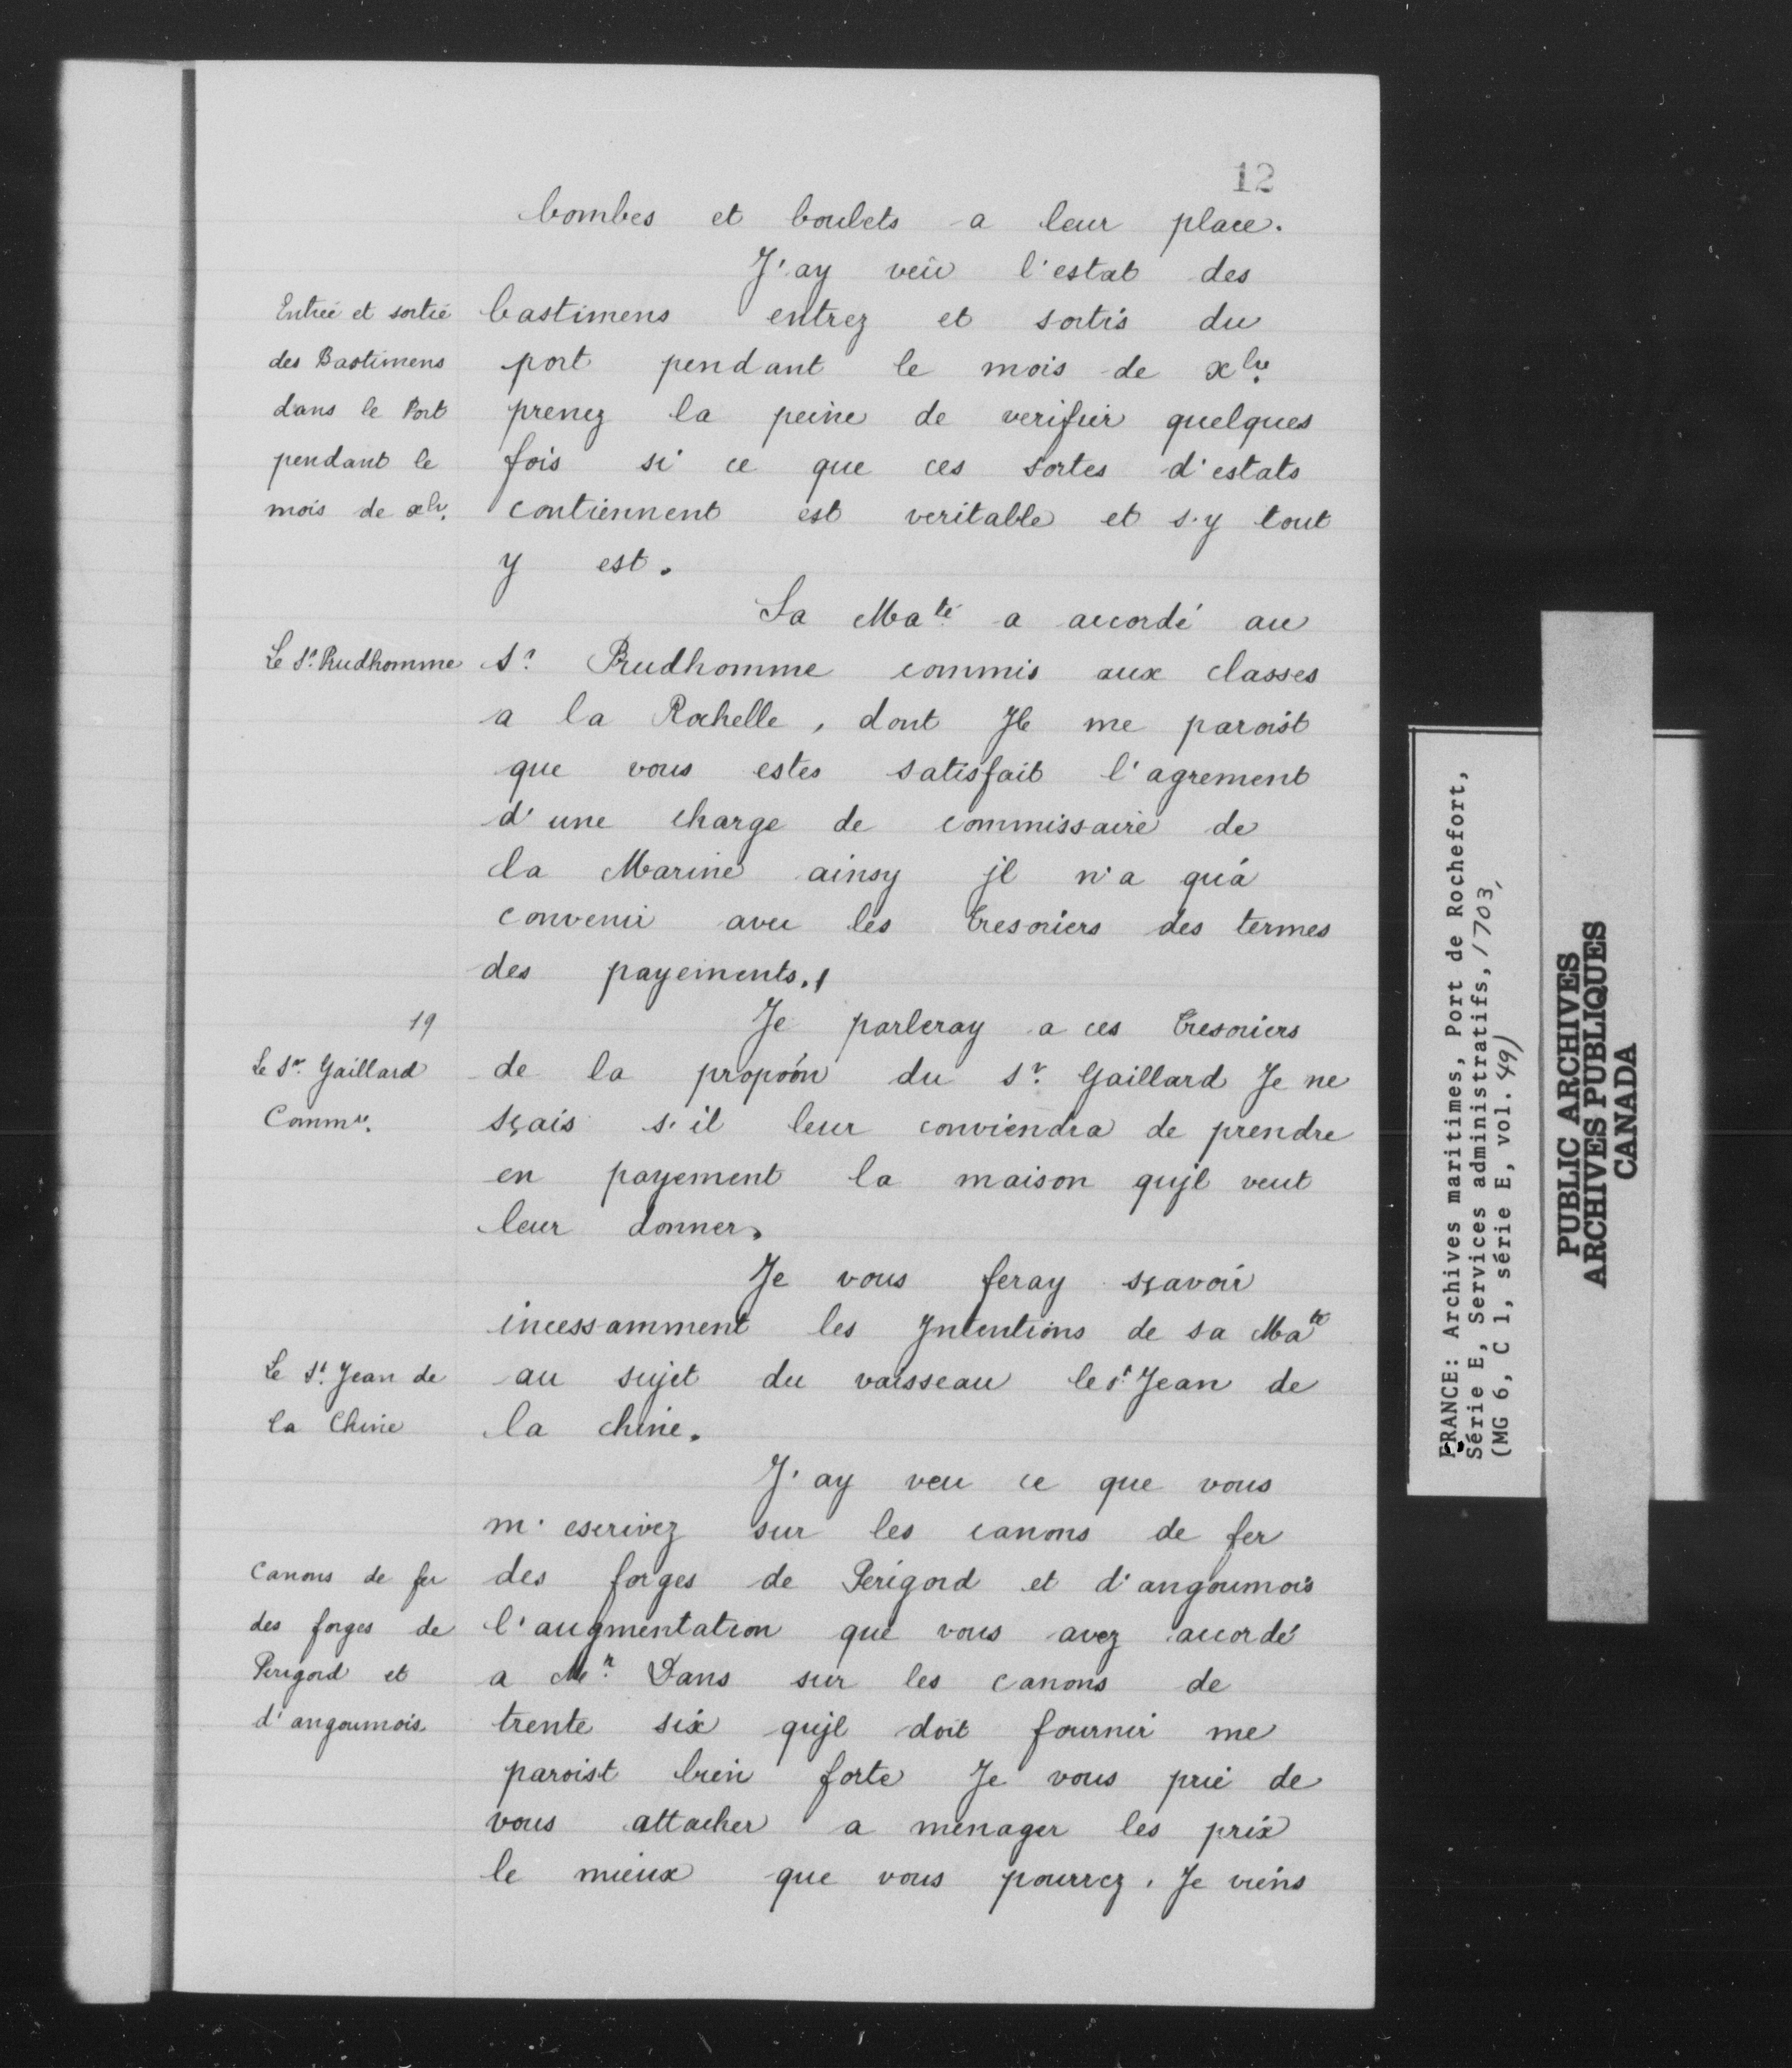 12
bombes et boulets a leur place.
J'ay veü l'estat des
Entreé et sortié
des Bastimens
dans le Port
pendant le
mois de xbr.
bastimens entrez et sortis du
port pendant le mois de xbre
prenez la peine de verifier quelques
fois si ce que ces sortes d'estats
contiennent est veritable et s'y tout
y est.
Sa Maté a accordé au
Le Sr. Prudhomme
Sr. Prudhomme commis aux classes
a la Rochelle, dont Jl me paroist
que vous estes satisfait l'agrement
d'une charge de commissaire de
la Marine ainsy jl n'a qu'á
convenir avec les tresoriers des termes
des payements.,
19
Le Sr. Gaillard
Commre.
Je parleray a ces tresoriers
de la propoôn du Sr. Gaillard Je ne
sçais s'il leur conviendra de prendre
en payement la maison qujl veut
leur donner.
Je vous feray sçavoir
incessamment les Jntentions de sa Maté
Le St. Jean de
la Chine
au sujet du vaisseau le St. Jean de
la chine.
J'ay veu ce que vous
m'escrivez sur les canons de fer
Canons de fer
des forges de
Perigord et
d'angoumois.
des forges de Périgord et d'angoumois
l'augmentation que vous avez accordé
a Mr. Dans sur les canons de
trente six qujl doit fournir me
paroist bien forte Je vous prie de
vous attacher a menager les prix
le mieux que vous pourrez. Je viens
FRANCE: Archives maritimes, Port de Rochefort,
Série E, Services administratifs, 1703,
(MG 6, C 1, série E, vol. 49)
PUBLIC ARCHIVES
ARCHIVES PUBLIQUES
CANADA